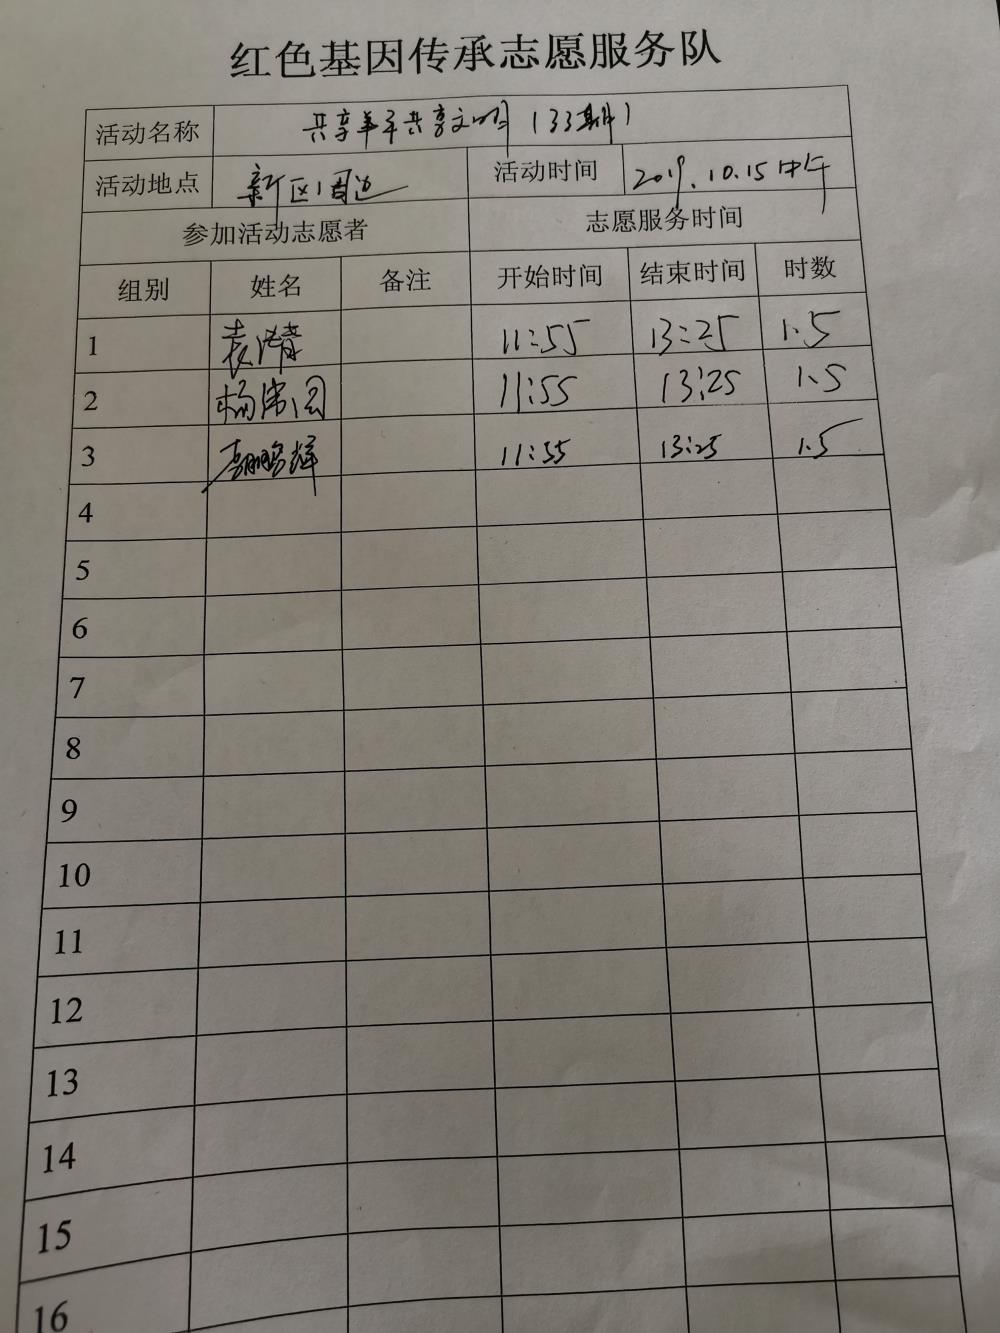 红色基因传承志愿服务队
活动名称 共享单车共享文明(33期)
活动地点 新区周边 活动时间 2019.10.15中午
参加活动志愿者 志愿服务时间
组别 姓名 备注 开始时间 结束时间 时数
1 袁 11:55 13:25 1.5
2 杨 11:55 13:25 1.5
3 鹏辉 11:55 13:25 1.5
4
5
6
7
8
9
10
11
12
13
14
15
16